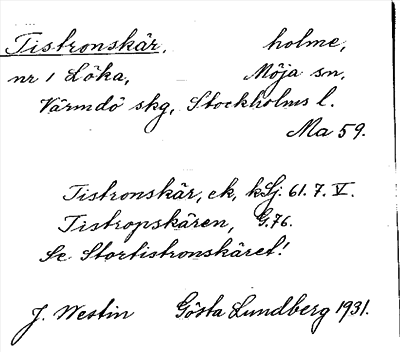 Tistronskär, holme,
nr 1 Löka, Möja sn,
Värmdö skg, Stockholms l.
Ma 59.
Tistronskär, ek, kSj. 61. 7. V.
Tistropskären, G.76.
Se Stortistronskäret!
J. Westin Gösta Lundberg 1931.